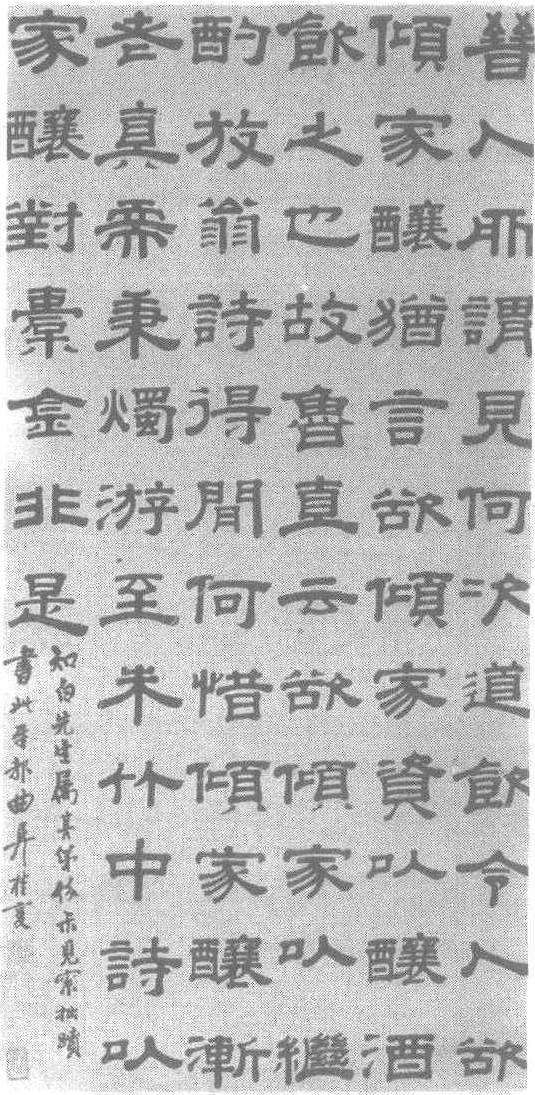 晉人所謂見何次道飲令人欲
傾家釀猶言欲傾家資以釀酒
飲之也故魯直云欲傾家以繼
酌放翁詩得閒何惜傾家釀漸
老真需秉燭游至朱竹中詩以
家釀對橐金非是
知白先生属其弟見索拙蹟
書此寄都曲阜桂馥